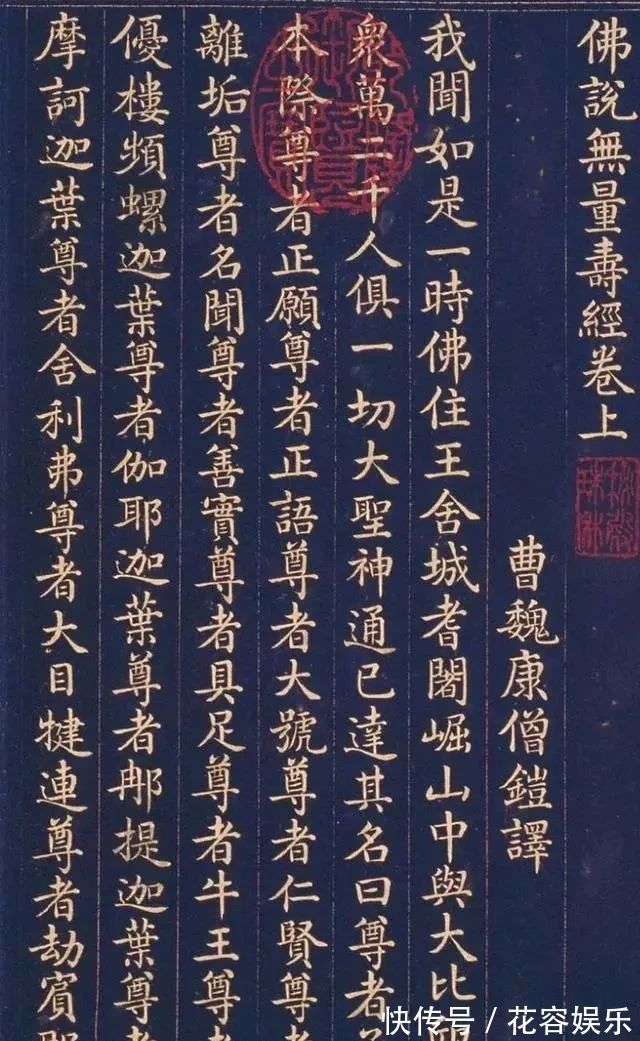 佛說無量壽經卷上
曹魏康僧鎧譯
我聞如是一時佛住王舍城耆闍崛山中與大比
衆萬二千人俱一切大聖神通已達其名曰尊者
本際尊者正願尊者正語尊者大號尊者仁賢尊
離垢尊者名聞尊者善實尊者具足尊者牛王尊
優樓頻螺迦葉尊者伽耶迦葉尊者那提迦葉尊
摩訶迦葉尊者舍利弗尊者大目犍連尊者劫賓
快传号/花容娱乐